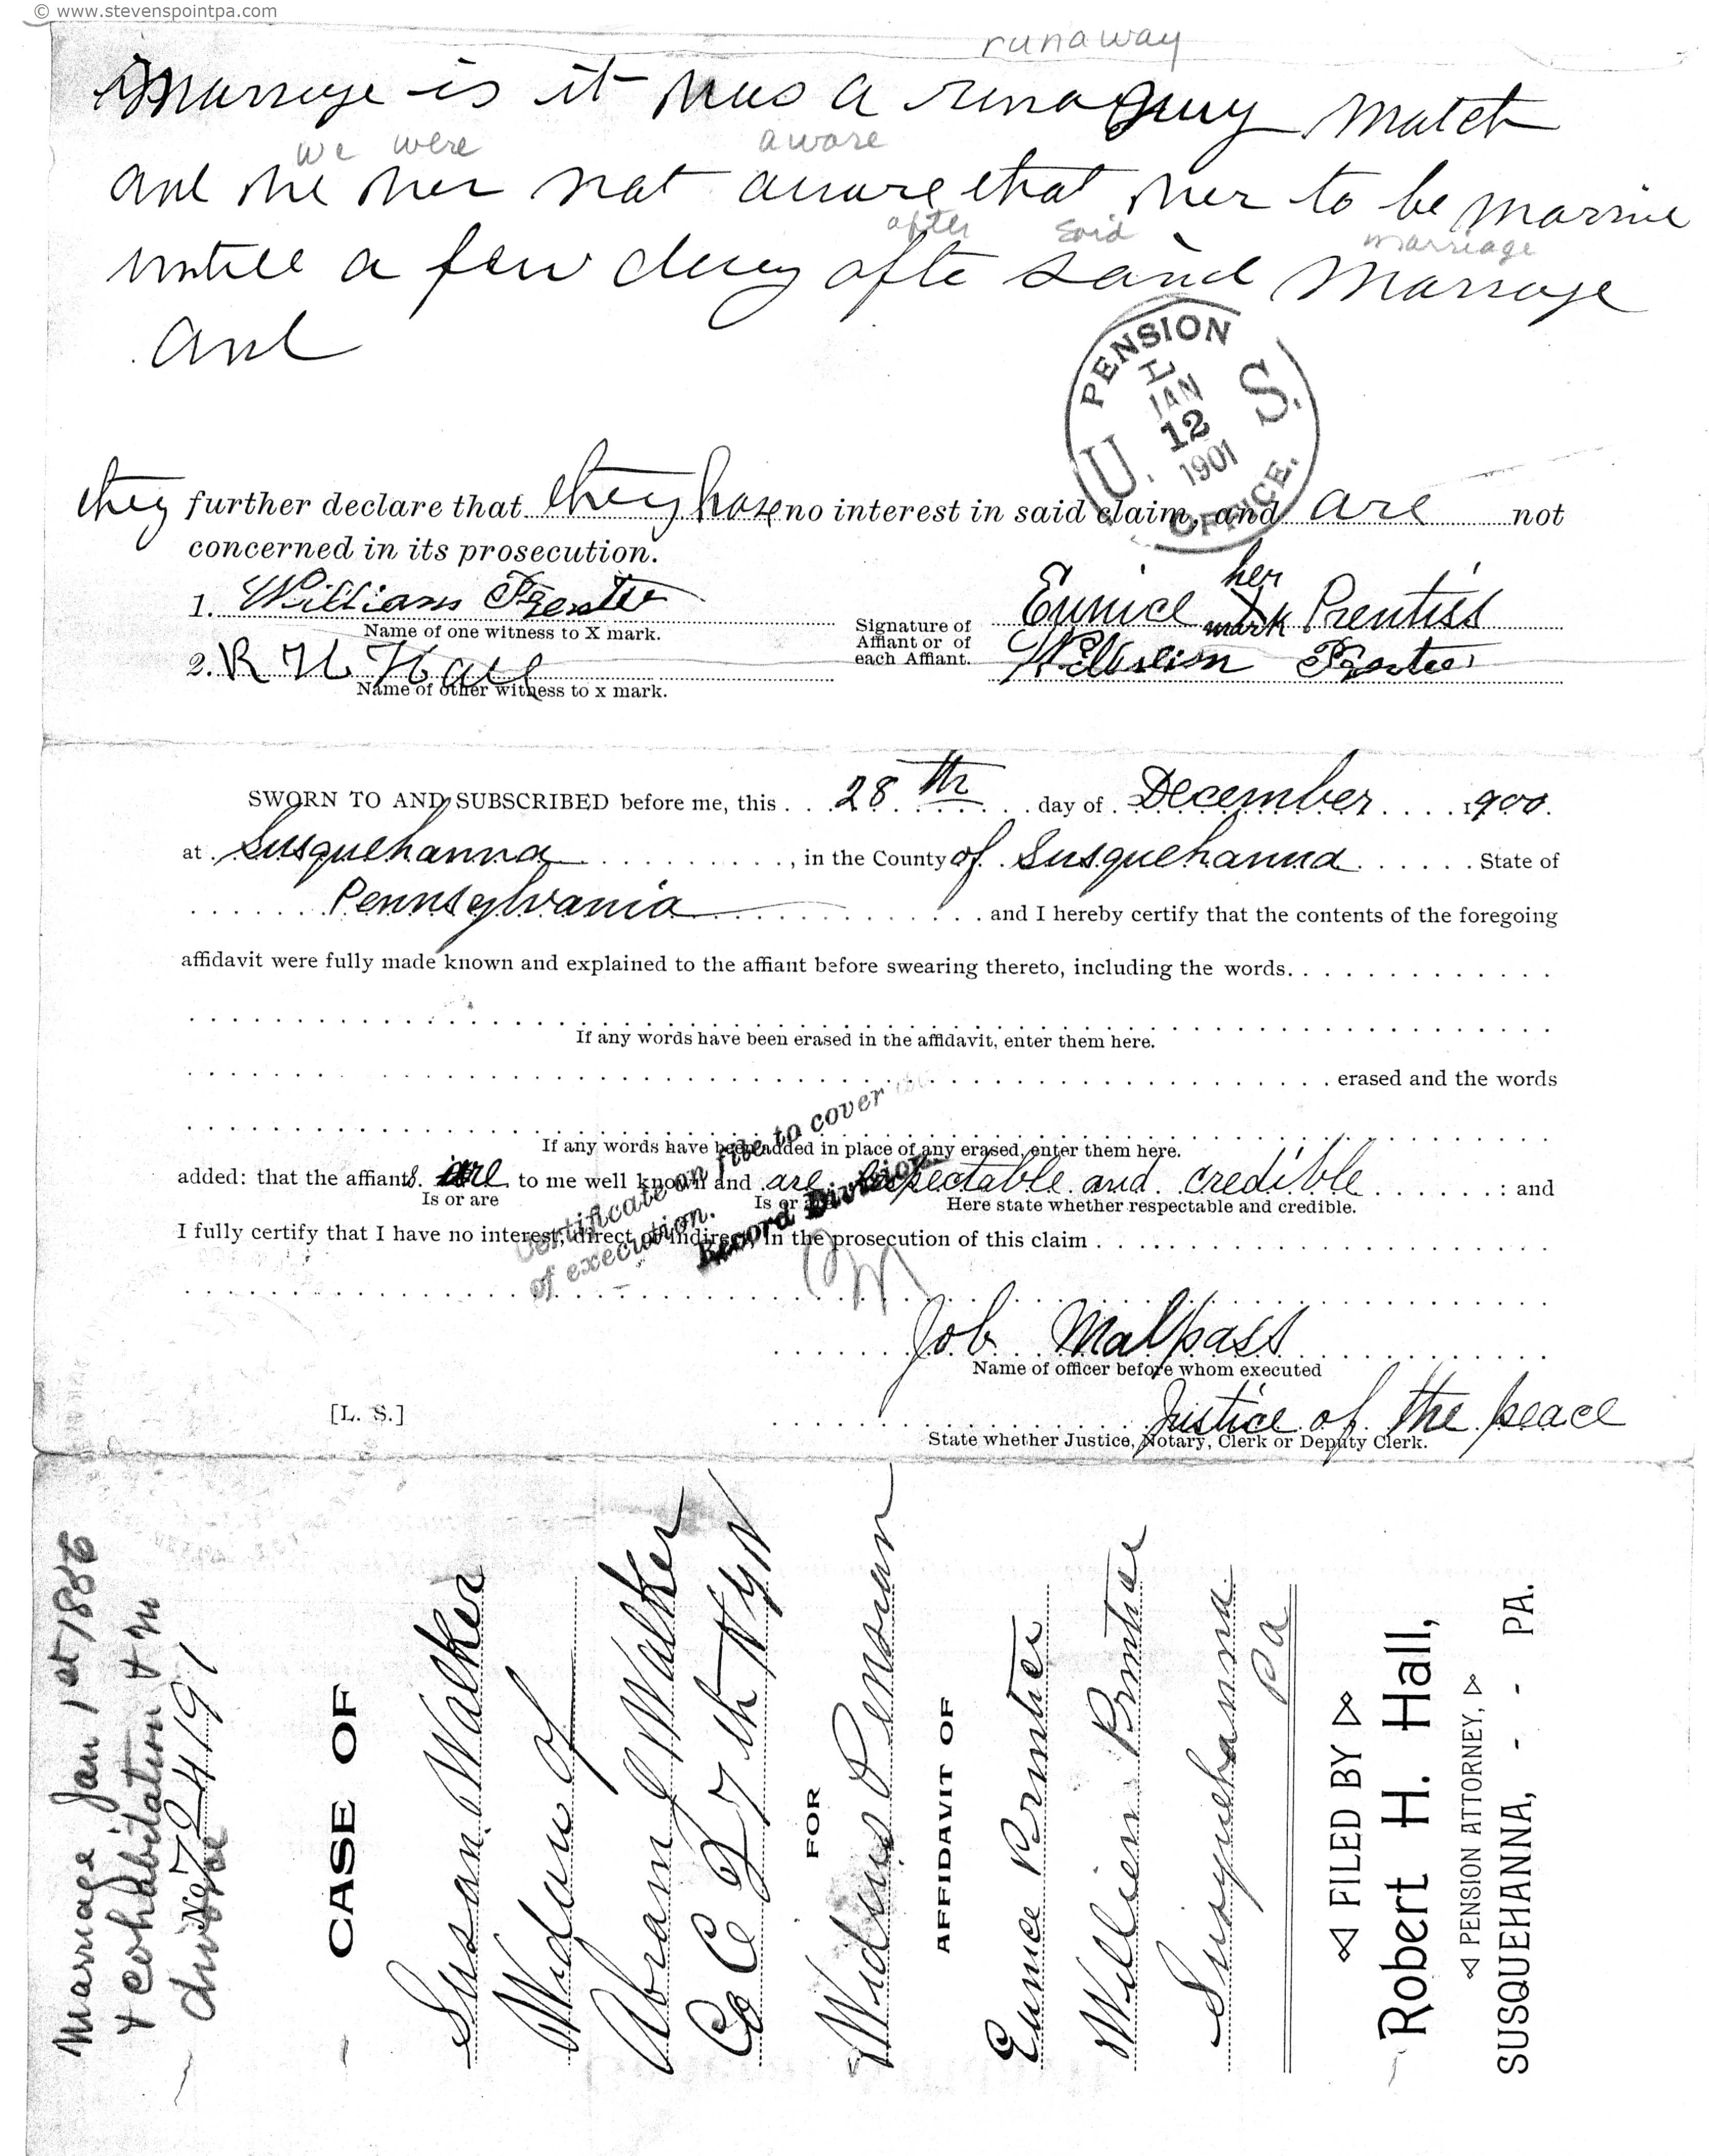 © www.stevenspointpa.com
runaway
marraye is it was a runaguy match
we were aware
and we wer not aware that wer to be marrie
after said marriage
untill a few days afte said marraye
and
PENSION
U. S.
L
JAN
12
1901
OFFICE.
they further declare that they have no interest in said claim, and are not
concerned in its prosecution.
1. William
Name of one witness to X mark.
2. R H Hall
Name of other witness to x mark.
Signature of
Affiant or of
each Affiant.
her
Eunice X Prentiss
mark
William
SWORN TO AND SUBSCRIBED before me, this 28th day of December 1900.
at Susquehanna, in the County of Susquehanna State of
Pennsylvania and I hereby certify that the contents of the foregoing
affidavit were fully made known and explained to the affiant before swearing thereto, including the words
If any words have been erased in the affidavit, enter them here.
erased and the words
If any words have been added in place of any erased, enter them here.
added: that the affiants are to me well known and are respectable and credible : and
Is or are Is or are Here state whether respectable and credible.
I fully certify that I have no interest, direct or indirect, in the prosecution of this claim
Certificate on file to cover
of execution.
Record Division.
Job Malpass
Name of officer before whom executed
[L. S.]
Justice of the peace
State whether Justice, Notary, Clerk or Deputy Clerk.
Marriage Jan 1st 1886
+ cohabitation +
No 724191
divorce
CASE OF
Susan Walker
Widow of
Abram J Walker
Co C 27th N Y V
FOR
Widows Pension
AFFIDAVIT OF
Eunice Prentice
William Prentice
Susquehanna
Pa
FILED BY
Robert H. Hall,
PENSION ATTORNEY,
SUSQUEHANNA, - - PA.